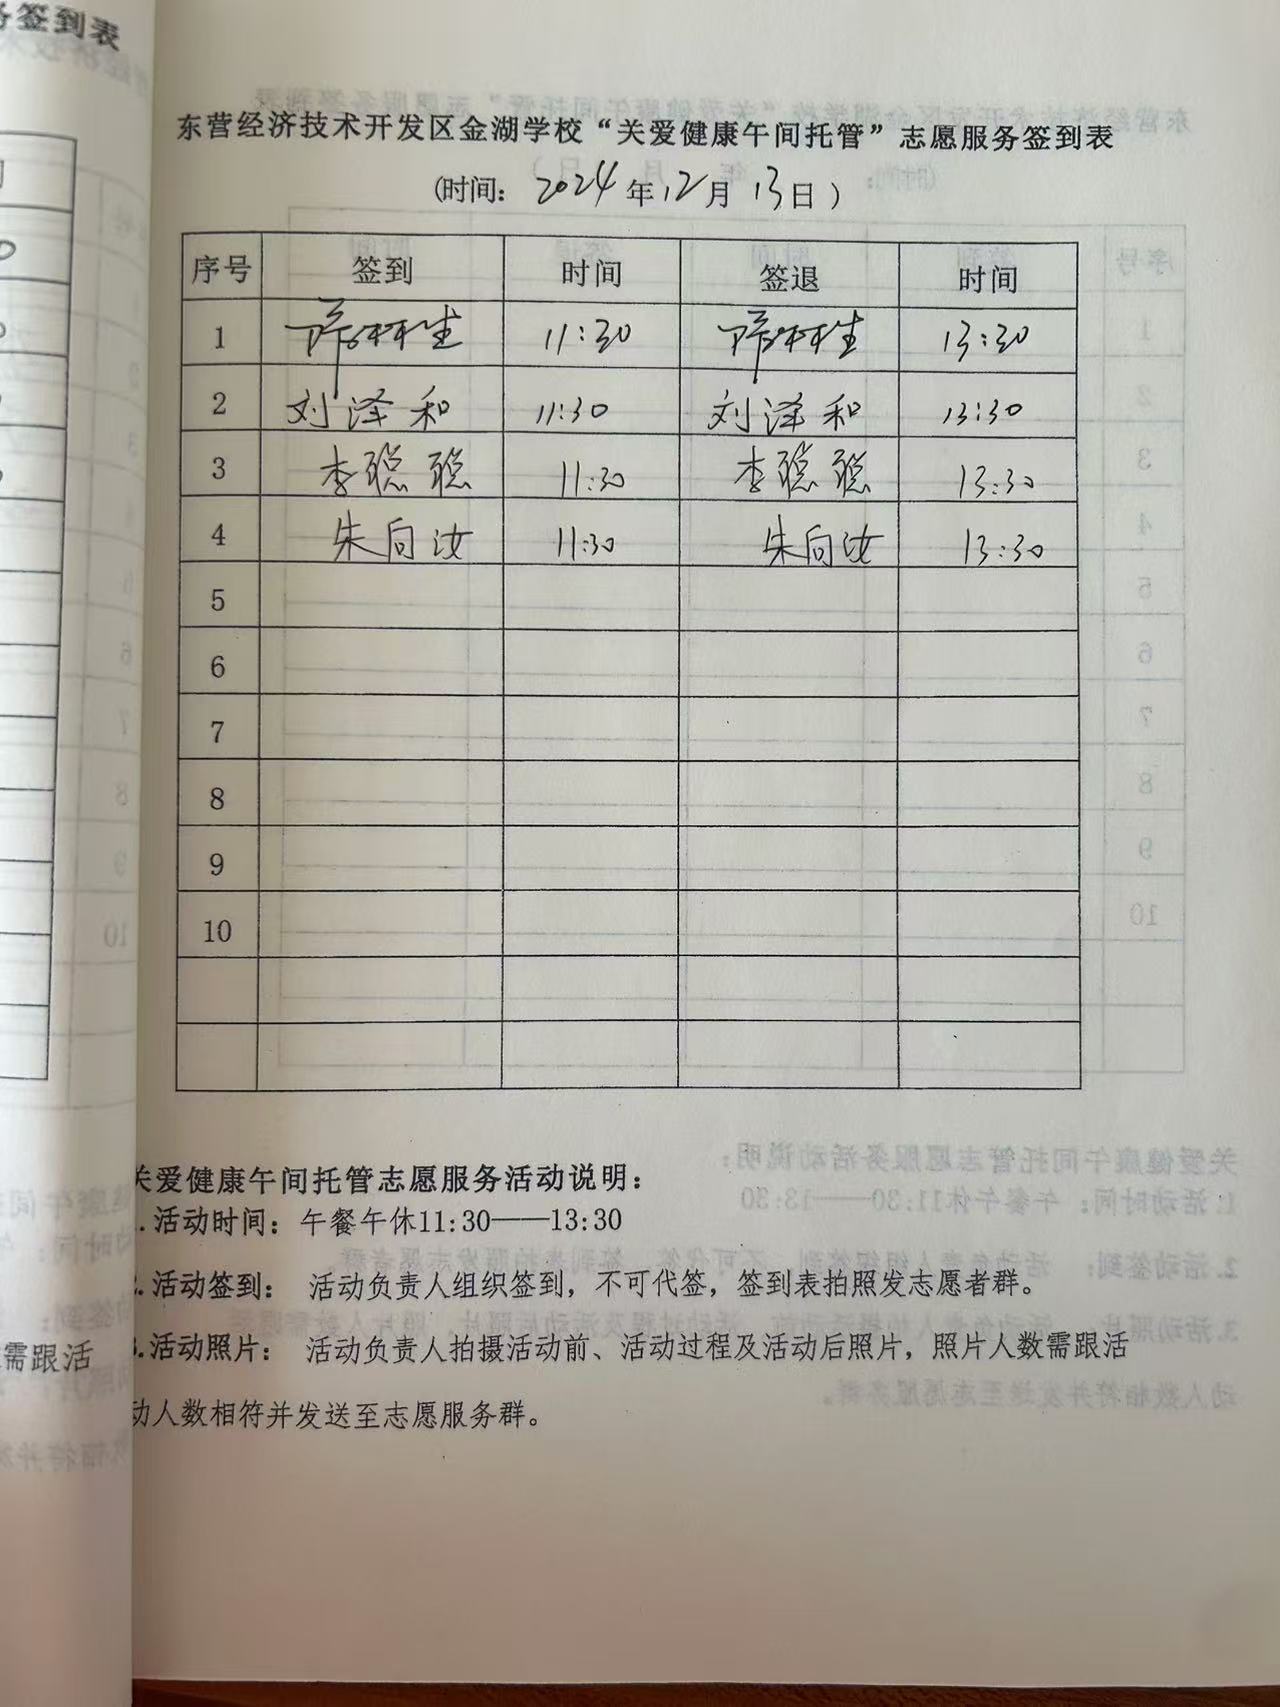 务签到表
东营经济技术开发区金湖学校“关爱健康午间托管”志愿服务签到表
(时间: 2024年12月13日)
序号 签到 时间 签退 时间
1 11:30 13:30
2 刘泽和 11:30 刘泽和 13:30
3 李聪聪 11:30 李聪聪 13:30
4 朱向汝 11:30 朱向汝 13:30
5
6
7
8
9
10
关爱健康午间托管志愿服务活动说明:
1.活动时间: 午餐午休11:30——13:30
2.活动签到: 活动负责人组织签到,不可代签,签到表拍照发志愿者群。
3.活动照片: 活动负责人拍摄活动前、活动过程及活动后照片,照片人数需跟活
动人数相符并发送至志愿服务群。
需跟活